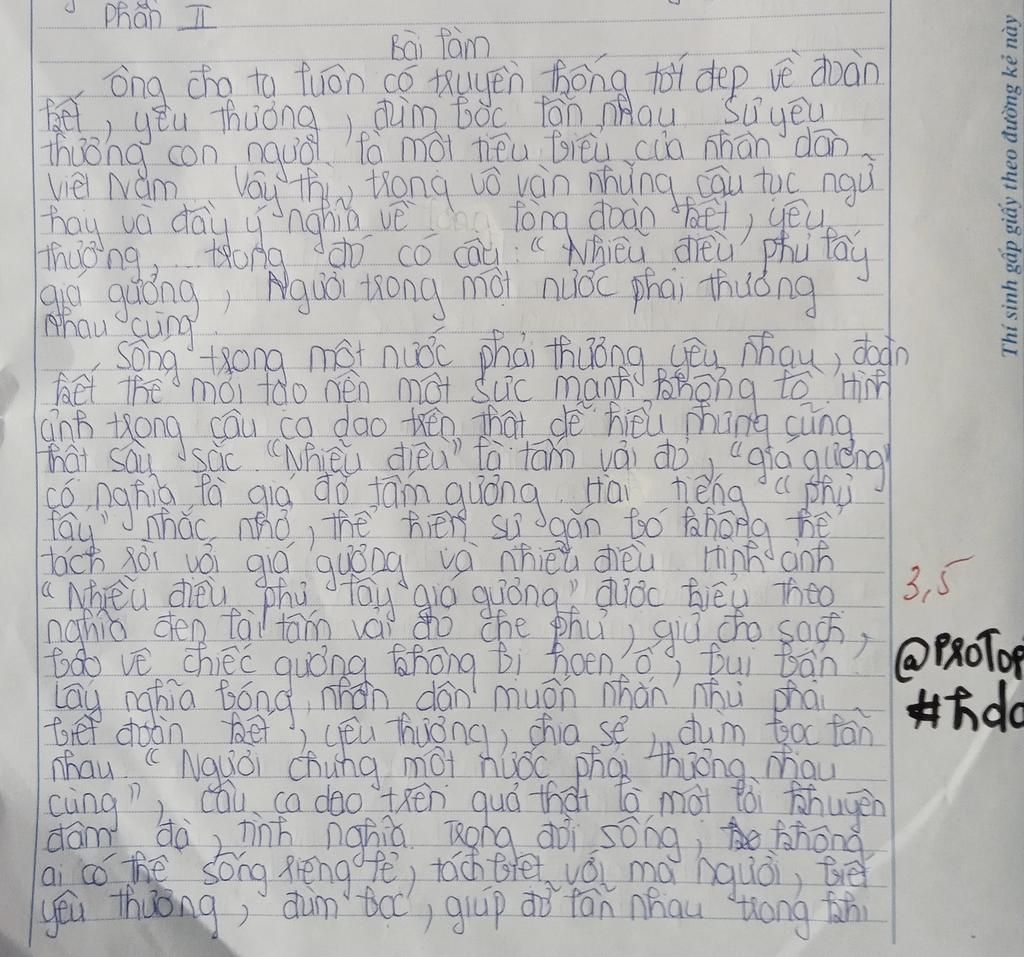 Phần II
Bài làm
Ông cha ta luôn có truyền thống tốt đẹp về đoàn
kết, yêu thương, đùm bọc lẫn nhau. Sự yêu
thương con người là một tiêu biểu của nhân dân
Việt Nam. Vậy thì, trong vô vàn những câu tục ngữ
hay và đầy ý nghĩa về lòng đoàn kết, yêu
thương, trong đó có câu: "Nhiễu điều phủ lấy
giá gương, Người trong một nước phải thương
nhau cùng.
Sống trong một nước phải thương yêu nhau, đoàn
kết thế mới tạo nên một sức mạnh khổng lồ. Hình
ảnh trong câu ca dao trên thật dễ hiểu nhưng cũng
thật sâu sắc. "Nhiễu điều" là tấm vải đỏ, "giá gương"
có nghĩa là giá đỡ tấm gương. Hai tiếng "phủ
lấy" nhắc nhở, thể hiện sự gắn bó không thể
tách rời với giá gương và nhiễu điều. Hình ảnh
"Nhiễu điều phủ lấy giá gương" được hiểu theo
nghĩa đen là tấm vải đỏ che phủ, giữ cho sạch,
bảo vệ chiếc gương không bị hoen ố, bụi bẩn.
Lấy nghĩa bóng, nhân dân muốn nhắn nhủ phải
biết đoàn kết, yêu thương, chia sẻ, đùm bọc lẫn
nhau. "Người chung một nước phải thương nhau
cùng", câu ca dao trên quả thật là một lời khuyên
đậm đà, tình nghĩa. Trong đời sống, không
ai có thể sống riêng lẻ, tách biệt với mọi người, biết
yêu thương, đùm bọc, giúp đỡ lẫn nhau trong khi
Thí sinh gấp giấy theo đường kẻ này
3,5